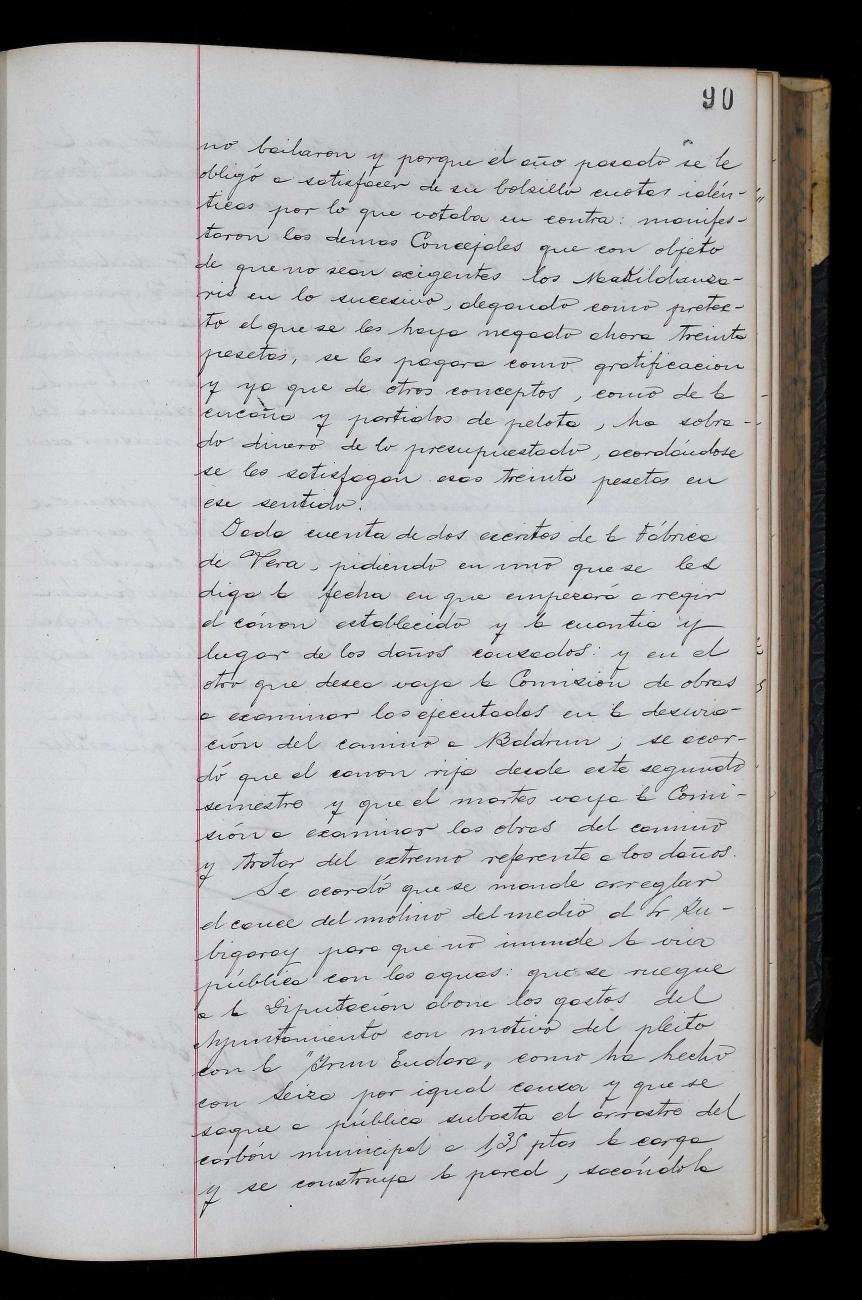 90
no bailaron y porque el año pasado se le
obligó a satisfacer de su bolsillo cuotas idén-
ticas por lo que votaba en contra: manifes-
taron los demas Concejales que con objeto
de que no sean exigentes los Makildanza-
ris en lo sucesivo, degando como pretex-
to el que se les haya negado ahora treinta
pesetas, se les pagara como gratificacion
y ya que de otros conceptos, como de la
cucaña y partidos de pelota, ha sobra-
do dinero de lo presupuestado, acordándose
se les satisfagan esas treinta pesetas en
ese sentido.
Dada cuenta de dos escritos de la Fábrica
de Vera, pidiendo en uno que se les
diga la fecha en que empezará a regir
el cánon establecido y la cuantia y
lugar de los daños causados: y en el
otro que desea vaya la Comision de obras
a examinar las ejecutadas en la desvia-
ción del camino a Baldrun; se acor-
dó que el canon rija desde este segundo
semestre y que el martes vaya la Comi-
sión a examinar las obras del camino
y tratar del extremo referente a los daños.
Se acordó que se mande arreglar
el cauce del molino del medio al Sr Zu-
bigaray para que no inunde la via
pública con las aguas: que se ruegue
a la Diputación abone los gastos del
Ayuntamiento con motivo del pleito
con la "Irun Endara„ como ha hecho
con Leiza por igual causa y que se
saque a pública subasta el arrastre del
carbón municipal a 1,35 ptas la carga
y se construya la pared, sacándola